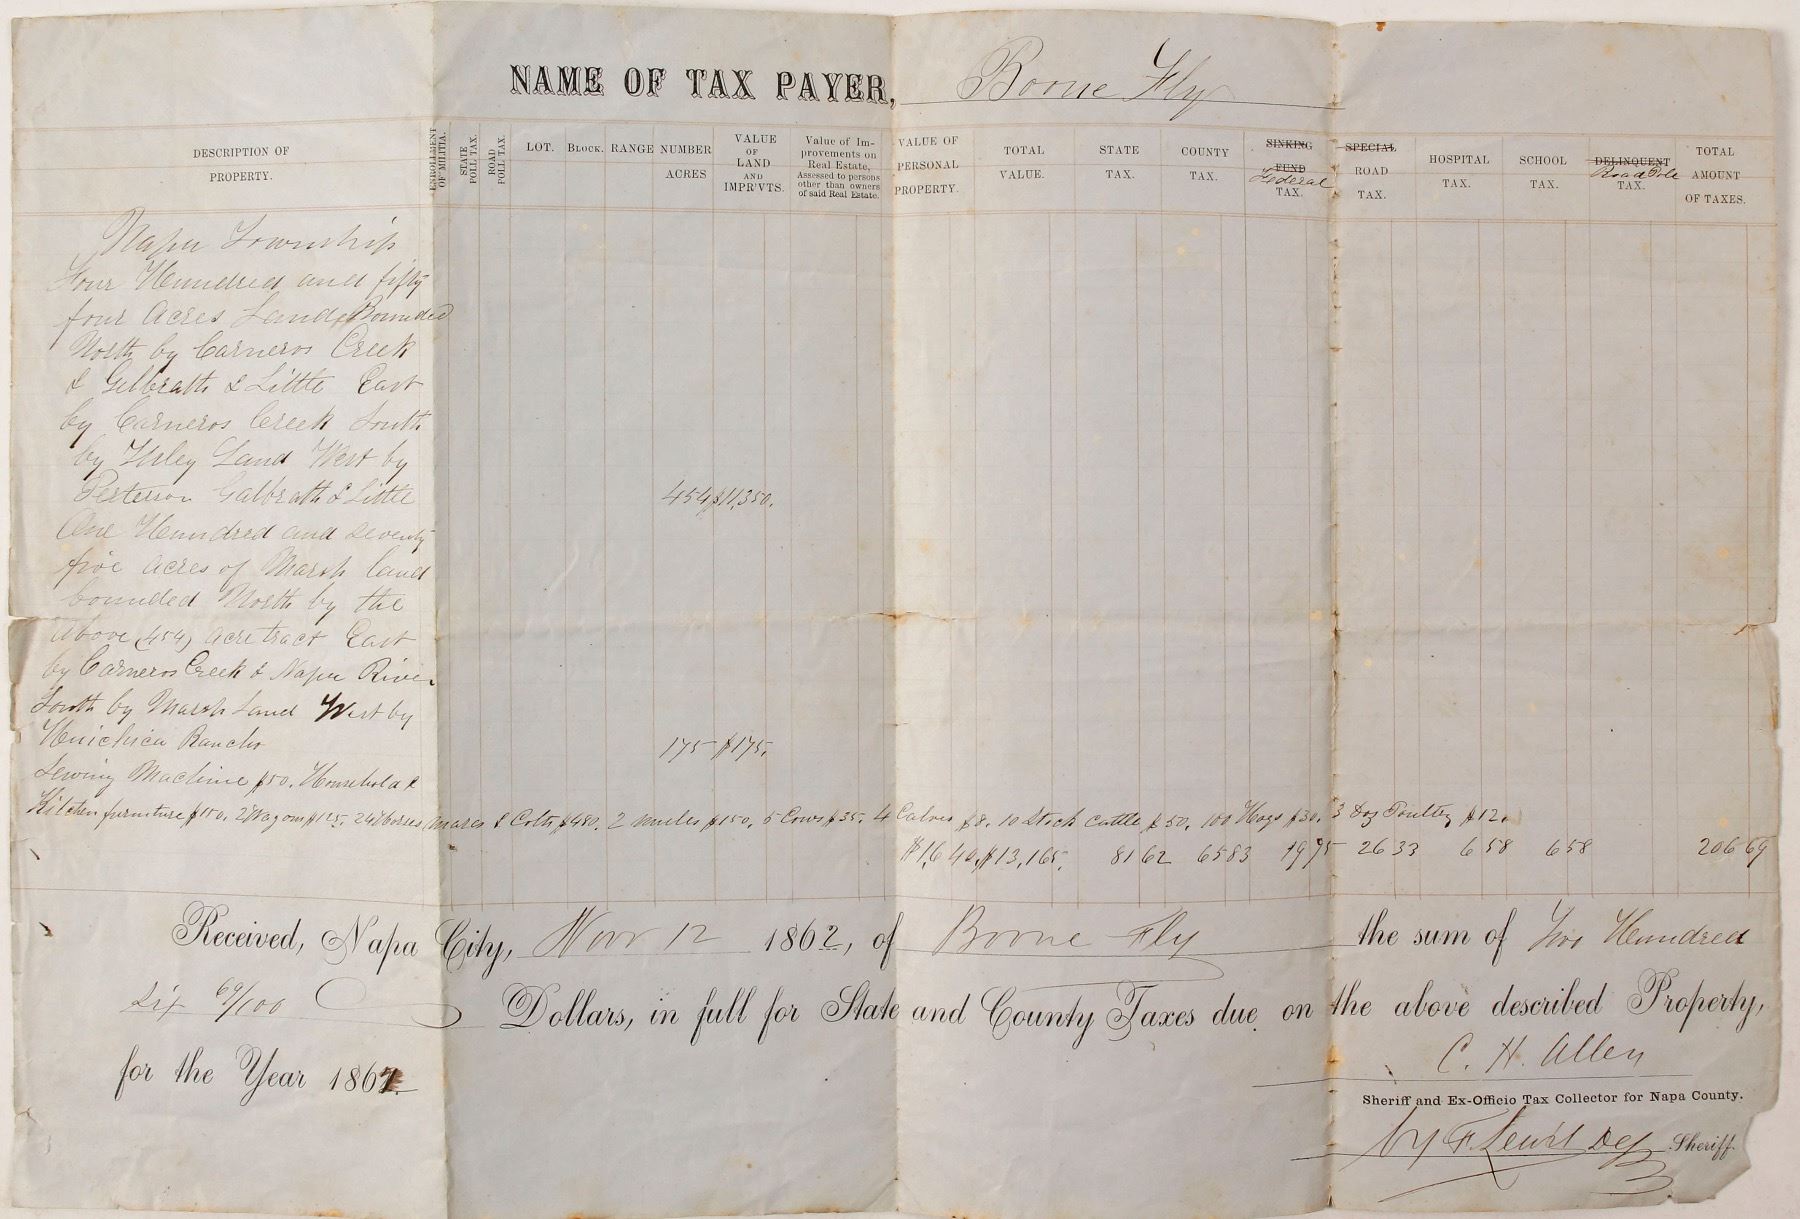 NAME OF TAX PAYER, Boone Fly
DESCRIPTION OF PROPERTY.
ENROLLMENT OF MILITIA.
STATE POLL TAX.
ROAD POLL TAX.
LOT.
BLOCK.
RANGE
NUMBER ACRES
VALUE OF LAND AND IMPR'VTS.
Value of Improvements on Real Estate, Assessed to persons other than owners of said Real Estate.
VALUE OF PERSONAL PROPERTY.
TOTAL VALUE.
STATE TAX.
COUNTY TAX.
SINKING FUND Federal TAX.
SPECIAL ROAD TAX.
HOSPITAL TAX.
SCHOOL TAX.
DELINQUENT Road Pole TAX.
TOTAL AMOUNT OF TAXES.
Napa Township
Four Hundred and fifty
four Acres Land Bounded
North by Carneros Creek
& Gelbrath & Little East
by Carneros Creek South
by Land West by
Galbrath & Little 454 $11,350.
One Hundred and seventy
five acres of Marsh land
bounded North by the
above (454) acre tract East
by Carneros Creek & Napa River
South by Marsh Land West by
Huichica Rancho 175 $175.
Sewing Machine $50. Household &
Kitchen furniture $150. 2 Wagons $125. 24 Horses, Mares & Colts $480. 2 mules $150. 5 Cows $35. 4 Calves $8. 10 Stock cattle $50. 100 Hogs $30. 3 Doz Poultry $12.
$1,640. $13,165. 81 62 65 83 19 75 26 33 6 58 6 58 206 69
Received, Napa City, Nov 12 1862, of Boone Fly the sum of Two Hundred
Six 69/100 Dollars, in full for State and County Taxes due on the above described Property,
for the Year 1862.
C. H. Allen
Sheriff and Ex-Officio Tax Collector for Napa County.
by F. Lewis Dep Sheriff.